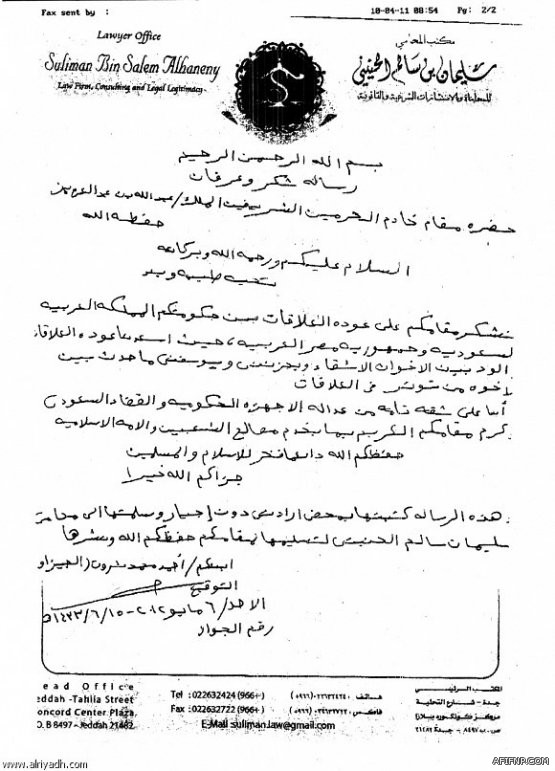 Fax sent by :
10-04-11 08:54 Pg: 2/2
Lawyer Office
Suliman Bin Salem Alhaneny
Law Firm, Consulting and Legal Legitimacy
مكتب المحامي
سليمان بن سالم الحنيني
للمحاماة والاستشارات الشرعية والقانونية
بسم الله الرحمن الرحيم
رسالة شكر وعرفان
حضرة مقام خادم الحرمين الشريفين الملك / عبدالله بن عبدالعزيز
حفظه الله
السلام عليكم ورحمه الله وبركاته
تحيه طيبه وبعد
نشكر مقامكم على عوده العلاقات بين حكومتكم المملكه العربيه
السعوديه وجمهوريه مصر العربيه، حيث اسعدنا عوده العلاقات
الود بين الاخوان الاشقاء ويحزننى ويوسفنى ما حدث بين
إخوه من توتر فى العلاقات
أنا على ثقه تامه من عداله الاجهزه الحكوميه والقضاء السعودى
كرم مقامكم الكريم بما يخدم مصالح الشعبين والامه الاسلاميه
حفظكم الله دائما فخر للاسلام والمسلمين
جزاكم الله خيرا
هذه الرساله كتبتها بمحض ارادتى دون إجبار وسلمتها الى محامى
سليمان سالم الحنينى لتسليمها لمقامكم حفظكم الله ونشرها
ابنكم / أحمد محمد ثروت (الجيزاو
التوقيع
الاحد / ٦ مايو ٢٠١٢ - ١٤٣٣/٦/١٥
رقم الجواز
ead Office
eddah -Tahlia Street
oncord Center Plaza,
O. B 8497 - Jeddah 21482
Tel : 022632424 (966+)
Fax : 022632722 (966+)
E-Mail suliman.law@gmail.com
هاتف :
فاكس :
المكتب الرئيسي
جدة - شارع التحلية
مركز كونكورد بلازا
ص.ب ٨٤٩٧ - جدة ٢١٤٨٢
www.alriyadh.com
AFIFNP.COM